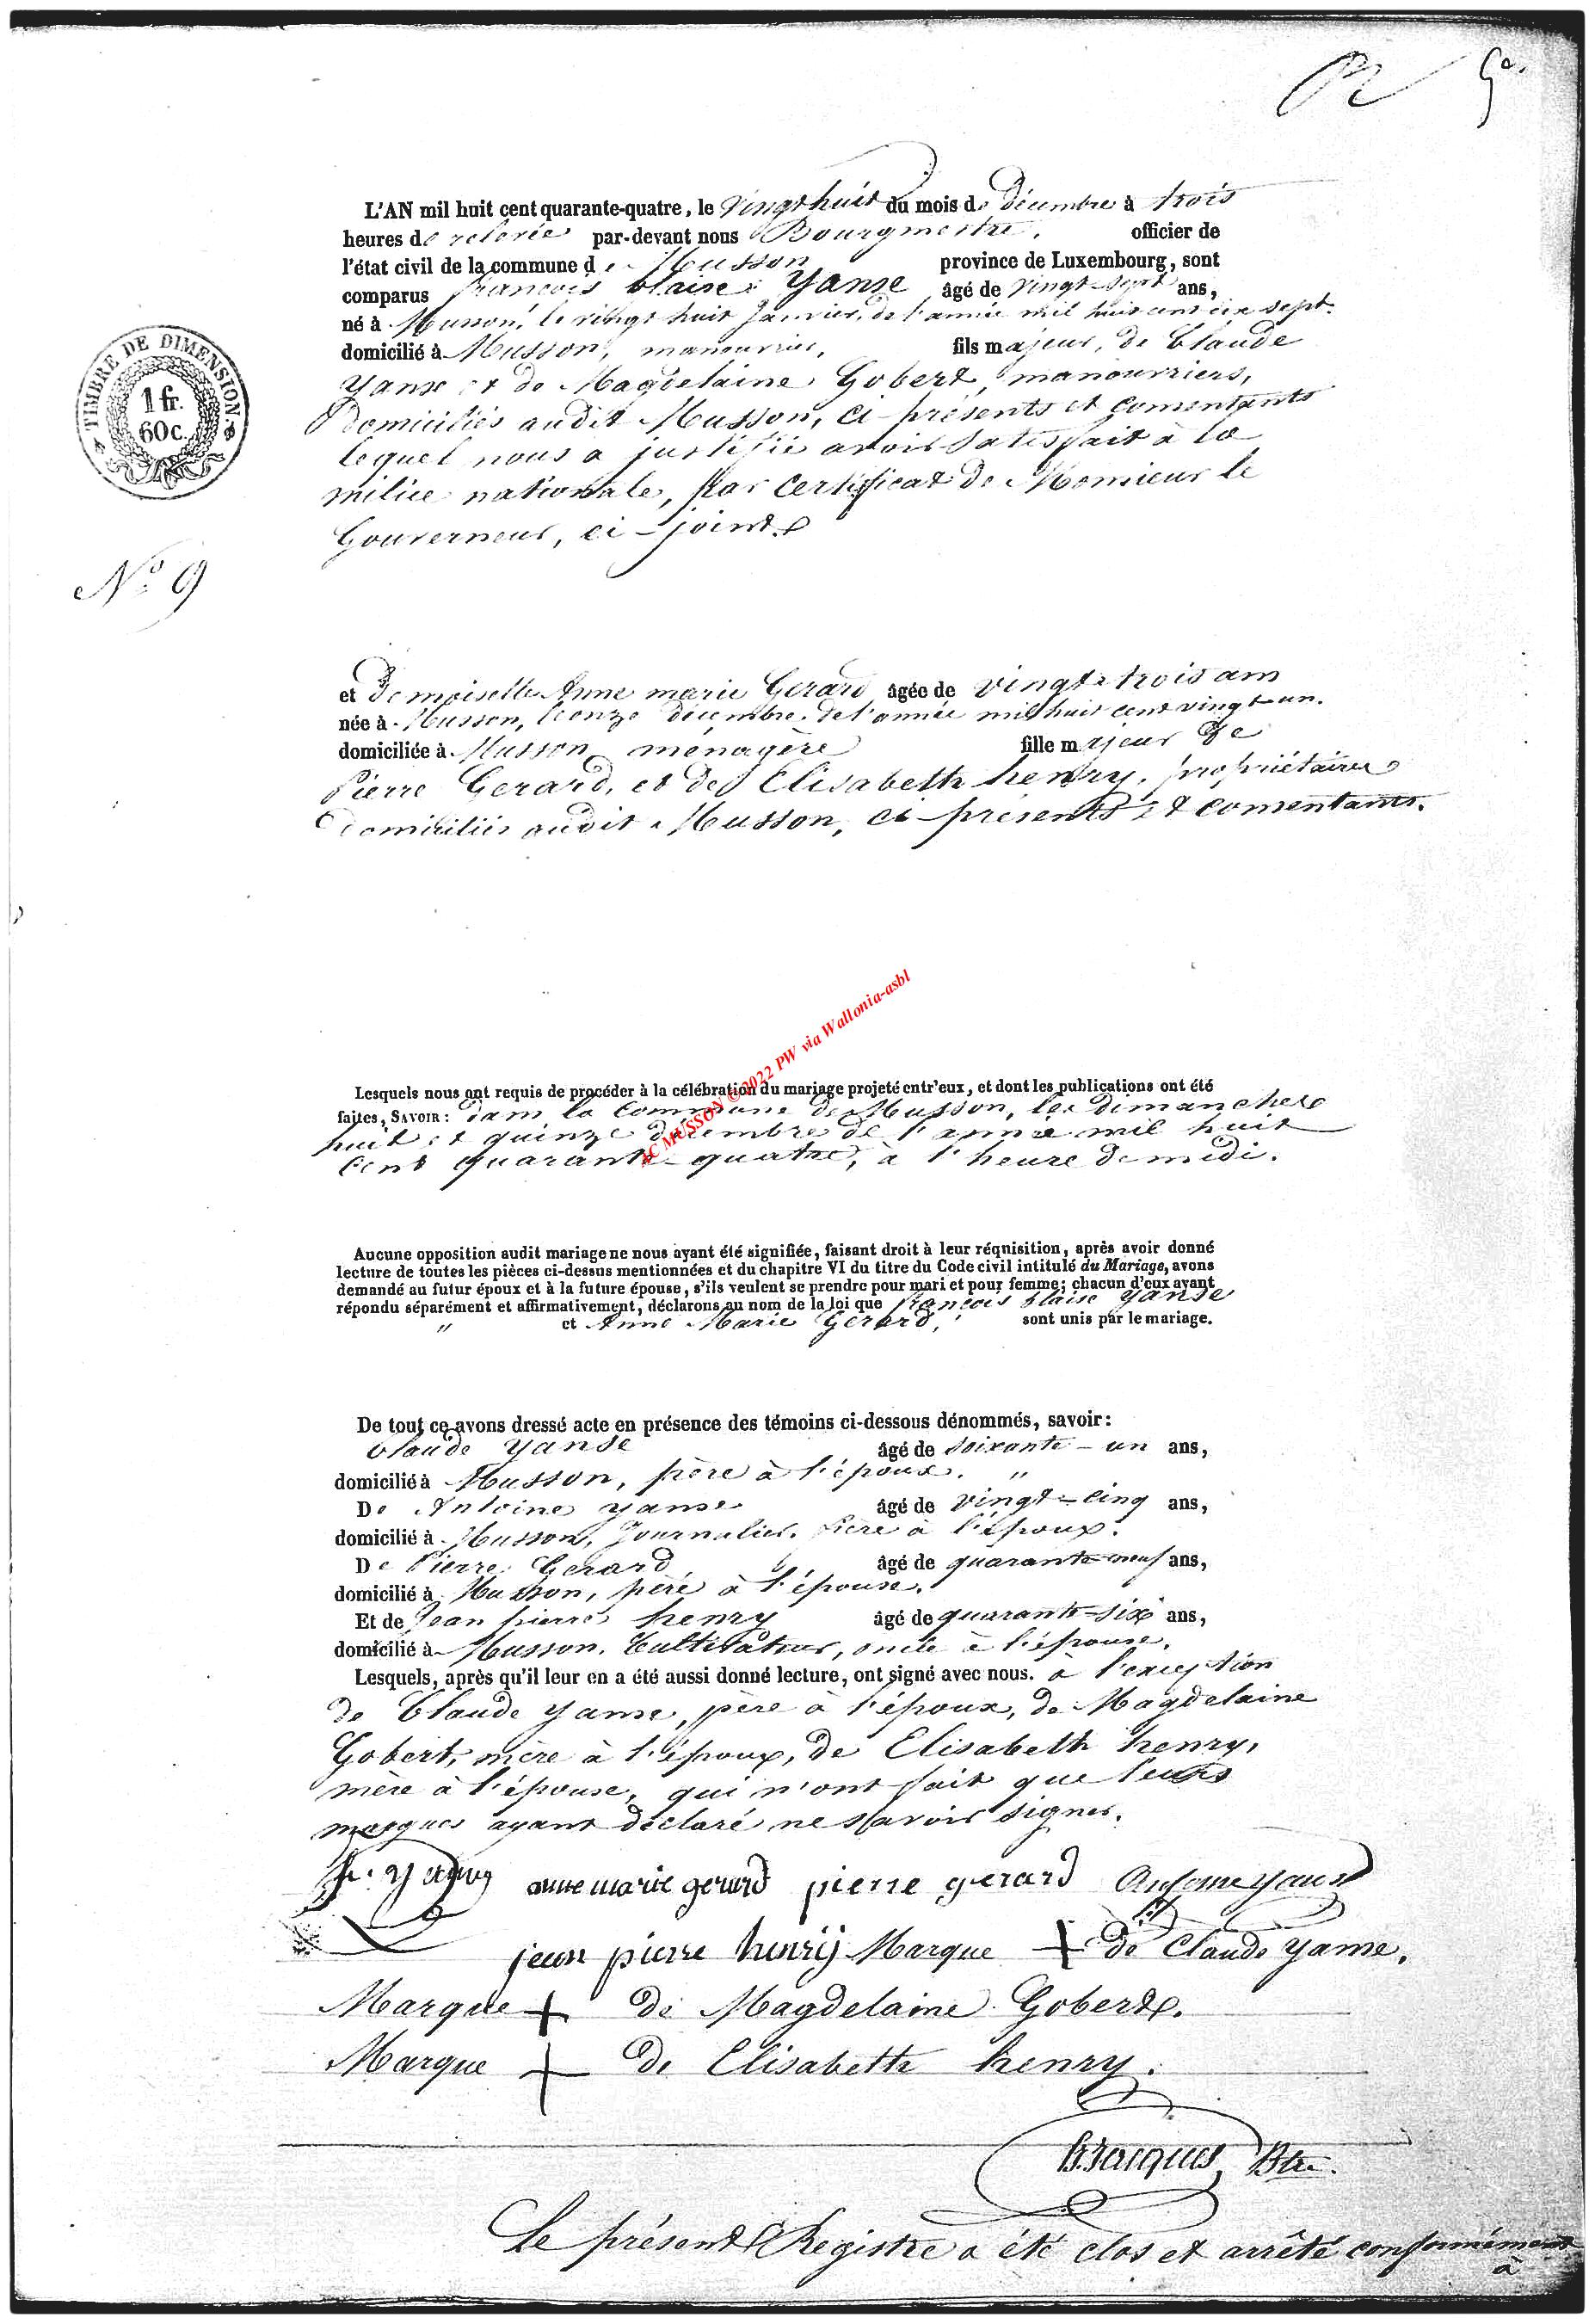 5e.
L'AN mil huit cent quarante-quatre, le vingt huit du mois de Décembre à trois
heures de relevée par-devant nous Bourgmestre, officier de
l'état civil de la commune de Musson province de Luxembourg, sont
comparus françois blaise Yanse âgé de vingt-sept ans,
né à Musson, le vingt huit Janvier, de l'année mil huit cent dix sept.
domicilié à Musson, manouvrier, fils majeur, de Claude
Yanse et de Magdelaine Gobert, manouvriers,
Domiciliés audit Musson, ci-présents et consentants
lequel nous a justifié avoir satisfait à la
milice nationale, par certificat de Monsieur le
Gouverneur, ci-joint.
TIMBRE DE DIMENSION.
1 fr.
60 c.
No 9
et Demoiselle Anne marie Gerard âgée de vingt-trois ans
née à Musson, le onze décembre, de l'année mil huit cent vingt-un.
domiciliée à Musson ménagère fille majeur de
Pierre Gerard, et de Elisabeth henry, propriétaires
Domiciliés audit Musson, ci-présents et consentants.
AC MUSSON © 2022 PW via Wallonia-asbl
Lesquels nous ont requis de procéder à la célébration du mariage projeté entr'eux, et dont les publications ont été
faites, SAVOIR: dans la Commune de Musson, les dimanches
huit et quinze décembre de l'année mil huit
Cent quarante-quatre, à l'heure de midi.
Aucune opposition audit mariage ne nous ayant été signifiée, faisant droit à leur réquisition, après avoir donné
lecture de toutes les pièces ci-dessus mentionnées et du chapitre VI du titre du Code civil intitulé du Mariage, avons
demandé au futur époux et à la future épouse, s'ils veulent se prendre pour mari et pour femme; chacun d'eux ayant
répondu séparément et affirmativement, déclarons au nom de la loi que françois blaise Yanse
" et Anne Marie Gerard, sont unis par le mariage.
De tout ce avons dressé acte en présence des témoins ci-dessous dénommés, savoir:
Claude Yanse âgé de soixante-un ans,
domicilié à Musson, père à l'époux. "
De Antoine Yanse âgé de vingt-cinq ans,
domicilié à Musson, Journalier, frère à l'époux.
De Pierre Gerard âgé de quarante-neuf ans,
domicilié à Musson, père à l'épouse.
Et de Jean pierre henry âgé de quarante-six ans,
domicilié à Musson, Cultivateur, oncle à l'épouse.
Lesquels, après qu'il leur en a été aussi donné lecture, ont signé avec nous. à l'exception
de Claude Yanse, père à l'époux, de Magdelaine
Gobert, mère à l'époux, de Elisabeth henry,
mère à l'épouse, qui n'ont fait que leurs
marques ayant déclaré ne savoir signer.
anne marie gerard pierre gerard Antoine yanse
jean pierre henrij Marque + de Claude Yanse.
Marque + de Magdelaine Gobert.
Marque + de Elisabeth henry.
Jacques, Btre.
Le présent Registre a été clos et arrêté conformément
à